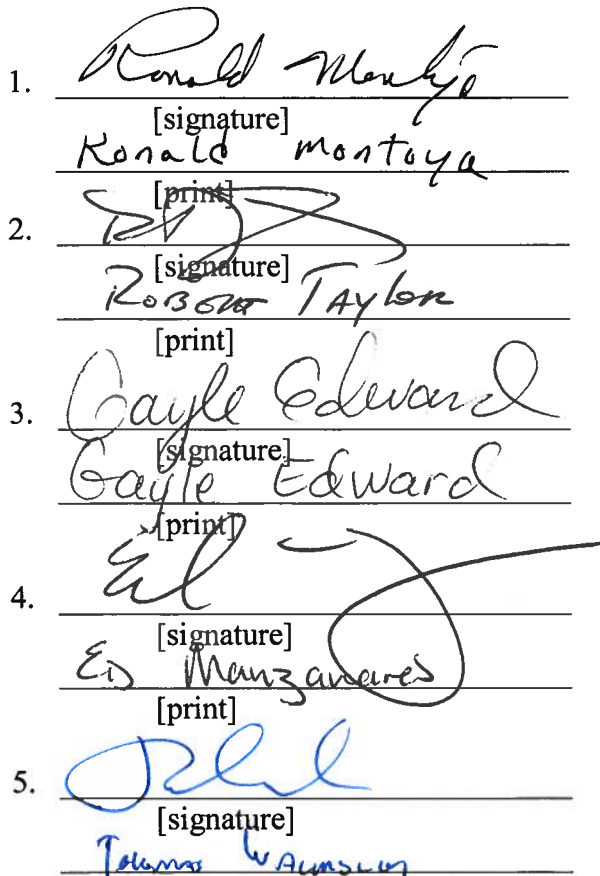 1. Ronald Montoya
[signature]
Ronald Montoya
[print]
2.
[signature]
Robert Taylor
[print]
3. Gayle Edward
[signature]
Gayle Edward
[print]
4. Ed
[signature]
Ed Manzanares
[print]
5.
[signature]
Thomas